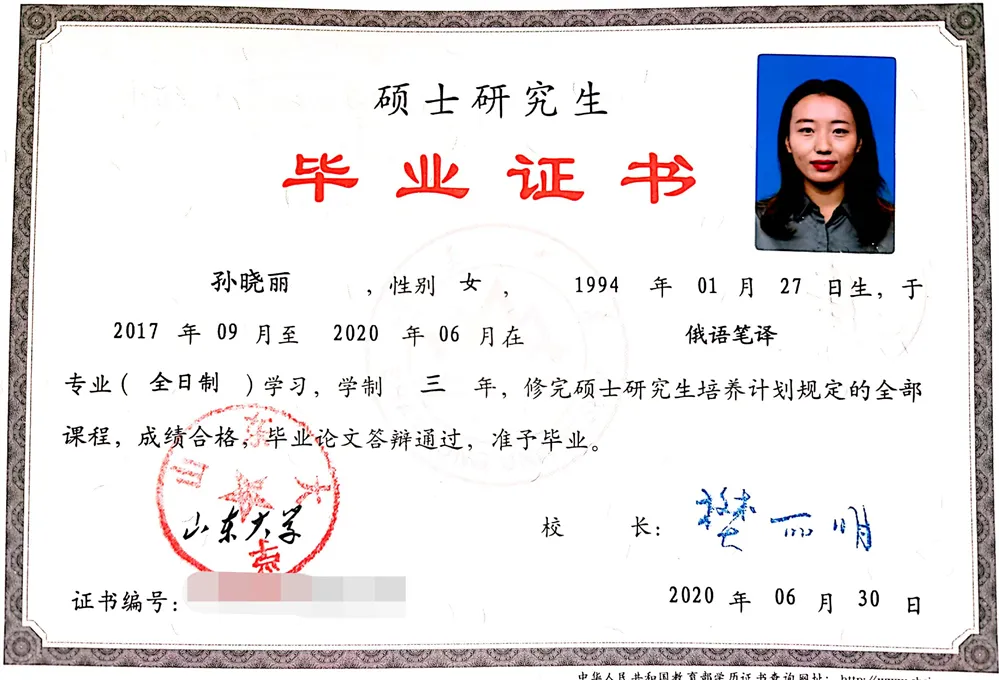 硕士研究生
毕业证书
孙晓丽 ，性别 女 ， 1994 年 01 月 27 日生，于
2017 年 09 月至 2020 年 06 月在 俄语笔译
专业（ 全日制 ）学习，学制 三 年，修完硕士研究生培养计划规定的全部
课程，成绩合格，毕业论文答辩通过，准予毕业。
山东大学
山东大学
校 长： 樊丽明
证书编号：
2020 年 06 月 30 日
中华人民共和国教育部学历证书查询网址：http://www.chsi